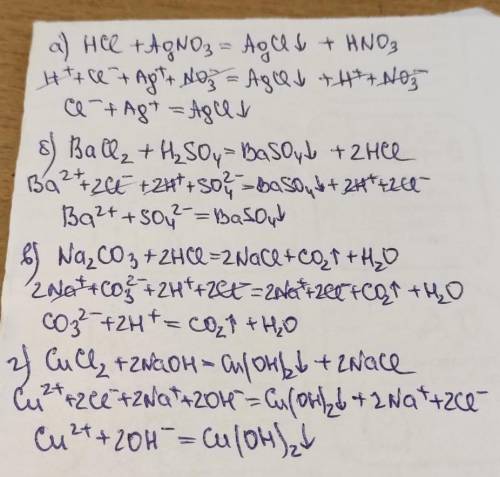 а) HCl + AgNO₃ = AgCl↓ + HNO₃
H⁺ + Cl⁻ + Ag⁺ + NO₃⁻ = AgCl↓ + H⁺ + NO₃⁻
Cl⁻ + Ag⁺ = AgCl↓
б) BaCl₂ + H₂SO₄ = BaSO₄↓ + 2HCl
Ba²⁺ + 2Cl⁻ + 2H⁺ + SO₄²⁻ = BaSO₄↓ + 2H⁺ + 2Cl⁻
Ba²⁺ + SO₄²⁻ = BaSO₄↓
в) Na₂CO₃ + 2HCl = 2NaCl + CO₂↑ + H₂O
2Na⁺ + CO₃²⁻ + 2H⁺ + 2Cl⁻ = 2Na⁺ + 2Cl⁻ + CO₂↑ + H₂O
CO₃²⁻ + 2H⁺ = CO₂↑ + H₂O
г) CuCl₂ + 2NaOH = Cu(OH)₂↓ + 2NaCl
Cu²⁺ + 2Cl⁻ + 2Na⁺ + 2OH⁻ = Cu(OH)₂↓ + 2Na⁺ + 2Cl⁻
Cu²⁺ + 2OH⁻ = Cu(OH)₂↓